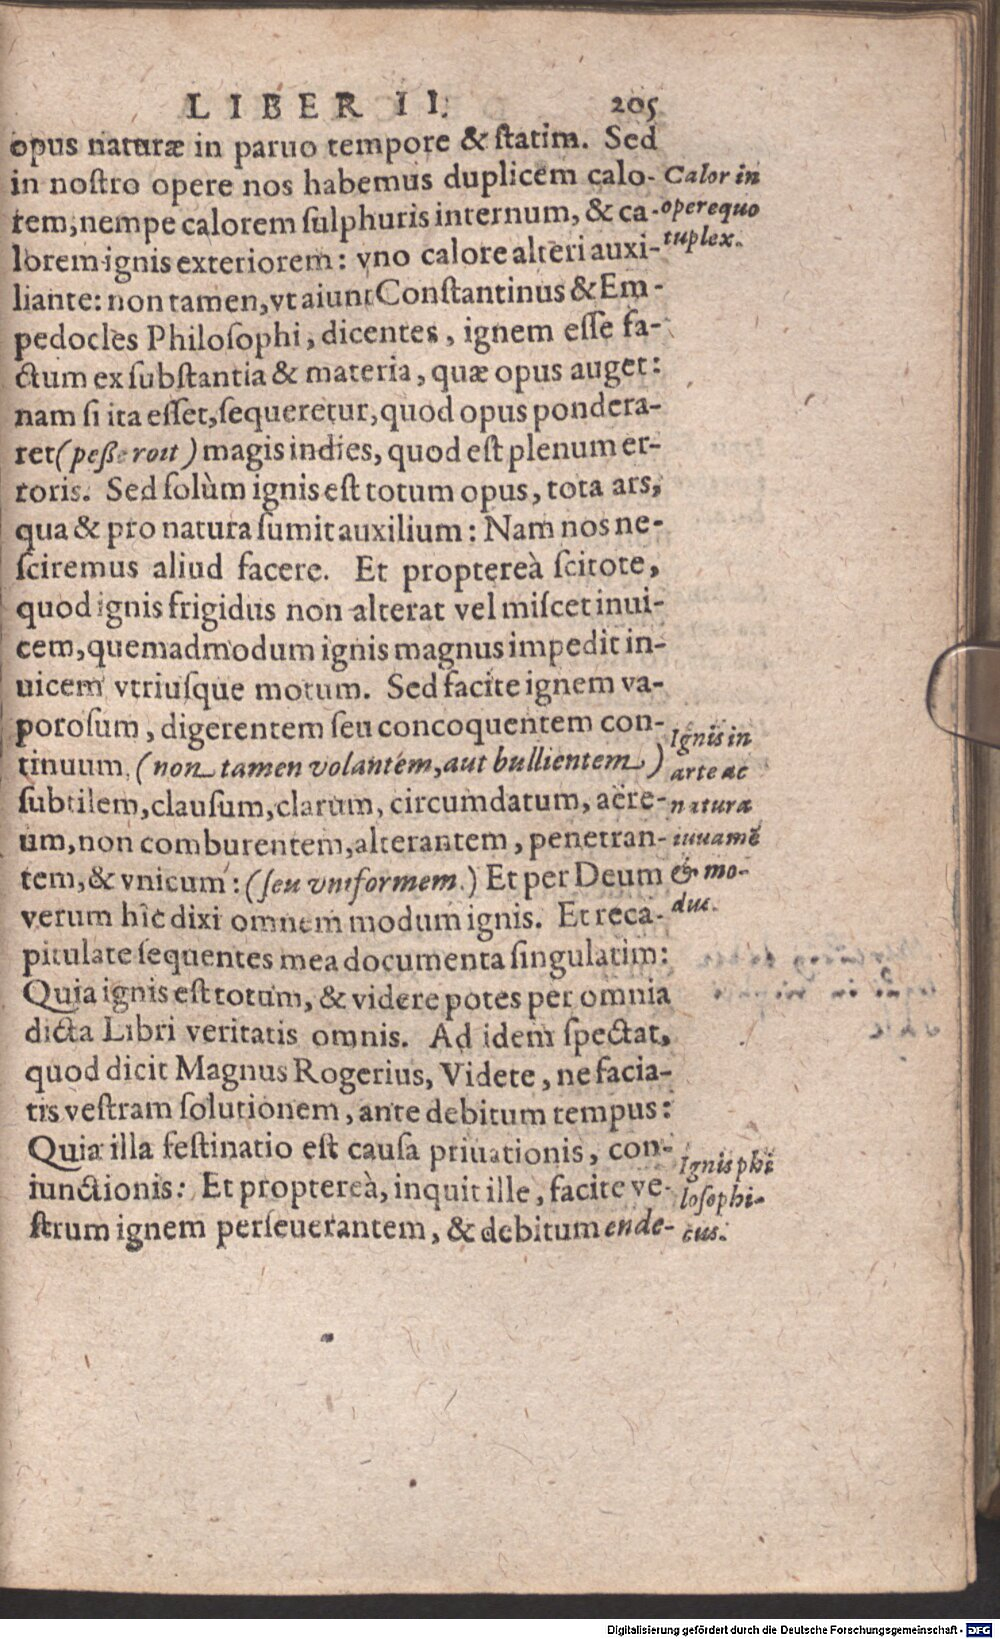 LIBER II. 205
opus naturæ in paruo tempore & ſtatim. Sed
in noſtro opere nos habemus duplicem calo-
rem, nempe calorem ſulphuris internum, & ca-
lorem ignis exteriorem: vno calore alteri auxi-
liante: non tamen, vt aiunt Conſtantinus & Em-
pedocles Philoſophi, dicentes, ignem eſſe fa-
ctum ex ſubſtantia & materia, quæ opus auget:
nam ſi ita eſſet, ſequeretur, quod opus pondera-
ret (peßeroit) magis indies, quod eſt plenum er-
roris. Sed ſolùm ignis eſt totum opus, tota ars,
qua & pro natura ſumit auxilium: Nam nos ne-
ſciremus aliud facere. Et proptereà ſcitote,
quod ignis frigidus non alterat vel miſcet inui-
cem, quemadmodum ignis magnus impedit in-
uicem vtriuſque motum. Sed facite ignem va-
poroſum, digerentem ſeu concoquentem con-
tinuum, (non tamen volantem, aut bullientem)
ſubtilem, clauſum, clarum, circumdatum, aëre-
um, non comburentem, alterantem, penetran-
tem, & vnicum: (ſeu vniformem.) Et per Deum
verum hîc dixi omnem modum ignis. Et reca-
pitulate ſequentes mea documenta ſingulatim:
Quia ignis eſt totum, & videre potes per omnia
dicta Libri veritatis omnis. Ad idem ſpectat,
quod dicit Magnus Rogerius, Videte, ne facia-
tis veſtram ſolutionem, ante debitum tempus:
Quia illa feſtinatio eſt cauſa priuationis, con-
iunctionis: Et proptereà, inquit ille, facite ve-
ſtrum ignem perſeuerantem, & debitum ende-
Calor in
opere quo
tuplex.
Ignis in
arte ac
natura
iuuamẽ
& mo-
dus.
Ignis phi
loſophi-
cus.
Digitalisierung gefördert durch die Deutsche Forschungsgemeinschaft - DFG